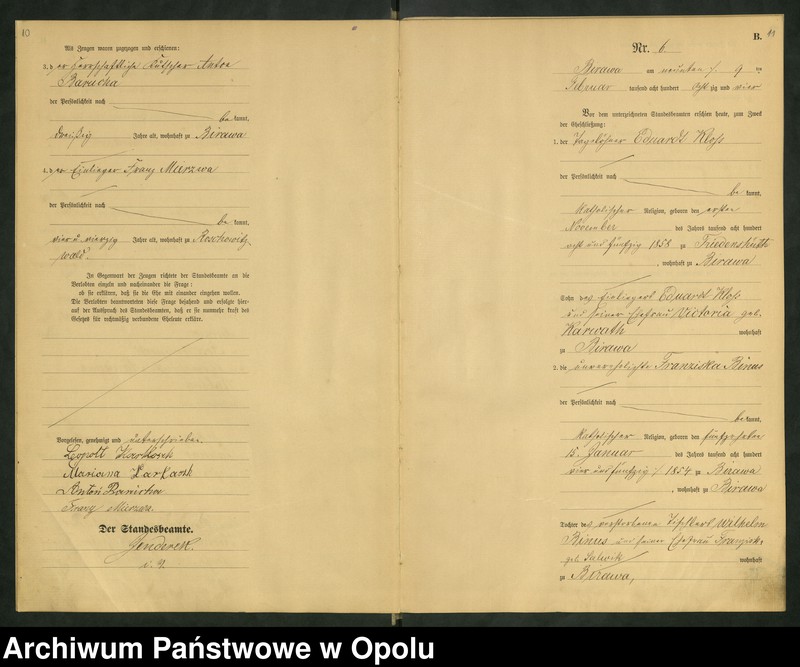 10
Als Zeugen waren zugezogen und erschienen:
3. der herrschaftliche Kutscher Anton
Banicka
der Persönlichkeit nach
be kannt,
dreißig Jahre alt, wohnhaft zu Birawa
4. der Einlieger Franz Murzwa
der Persönlichkeit nach
be kannt,
vier u. vierzig Jahre alt, wohnhaft zu Koschowitz
wald.
In Gegenwart der Zeugen richtete der Standesbeamte an die
Verlobten einzeln und nacheinander die Frage:
ob sie erklären, daß sie die Ehe mit einander eingehen wollen.
Die Verlobten beantworteten diese Frage bejahend und erfolgte hier-
auf der Ausspruch des Standesbeamten, daß er sie nunmehr kraft des
Gesetzes für rechtmäßig verbundene Eheleute erkläre.
Vorgelesen, genehmigt und unterschrieben
Leopolt
Marianna
Anton
Franz Murzwa.
Der Standesbeamte.
Jenderek.
B. 11
Nr. 6
Birawa am neunten / 9 ten
Februar tausend acht hundert acht zig und vier
Vor dem unterzeichneten Standesbeamten erschien heute, zum Zweck
der Eheschließung:
1. der Tagelöhner Eduardt Kloß
der Persönlichkeit nach
be kannt,
katholischer Religion, geboren den ersten
November des Jahres tausend acht hundert
acht und fünfzig 1858 zu Friedenshütte
, wohnhaft zu Birawa
Sohn des Einliegers Eduardt Kloß
und seiner Ehefrau Victoria geb.
Karwath wohnhaft
zu Birawa
2. die unverehelichte Franziska Binus
der Persönlichkeit nach
be kannt,
katholischer Religion, geboren den fünfzehnten
15. Januar des Jahres tausend acht hundert
vier und fünfzig / 1854 zu Birawa
, wohnhaft zu Birawa
Tochter des verstorbenen Tischlers Wilhelm
Binus und seiner Ehefrau Franziska
geb. wohnhaft
zu Birawa,
Archiwum Państwowe w Opolu